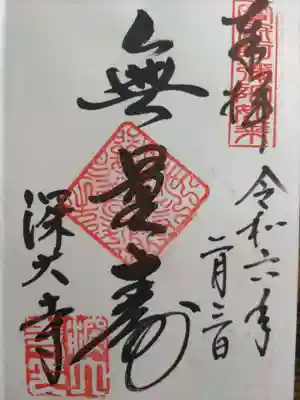 奉拝
令和六年
二月三日
無量壽
深大寺